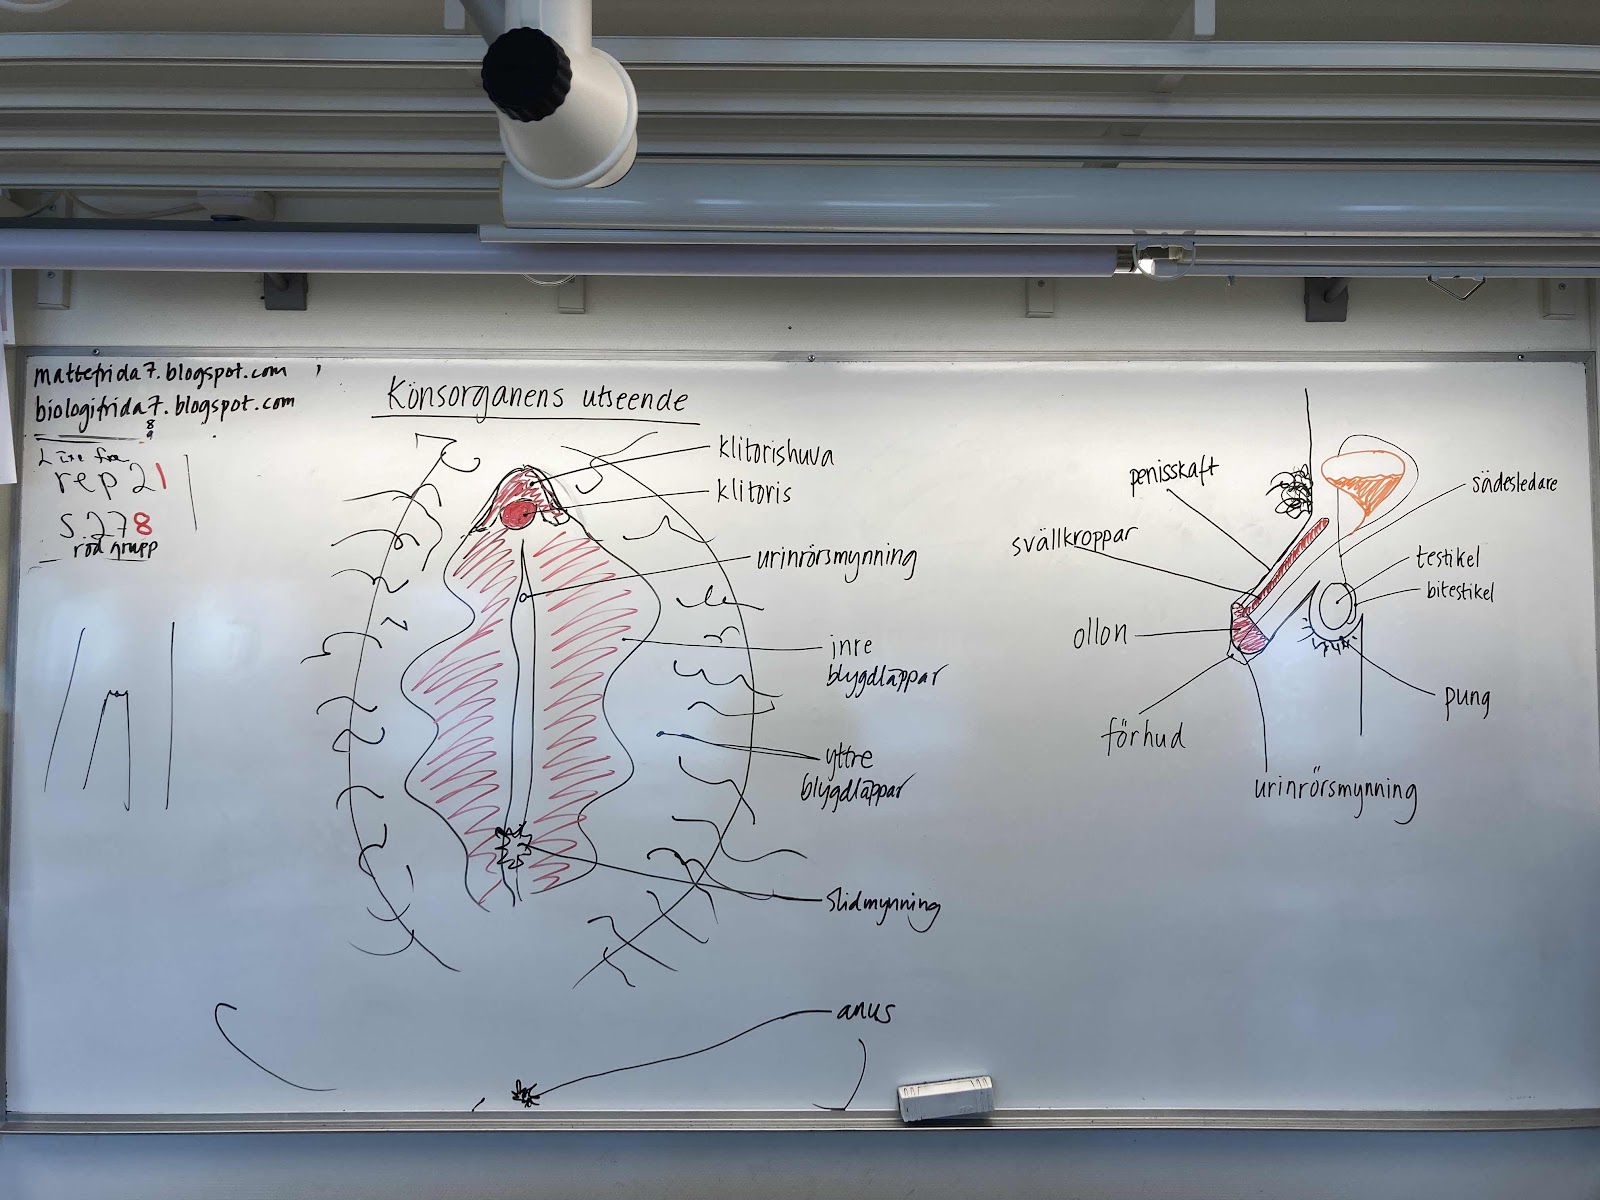 mattefrida7.blogspot.com
biologifrida7.blogspot.com
8
9
rep 21
s.278
röd grupp
Könsorganens utseende
klitorishuva
klitoris
urinrörsmynning
inre
blygdläppar
yttre
blygdläppar
slidmynning
anus
penisskaft
svällkroppar
ollon
förhud
urinrörsmynning
sädesledare
testikel
bitestikel
pung